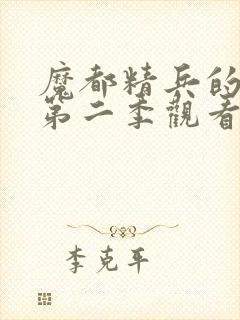 魔都精兵的
第二季觀看
李克平